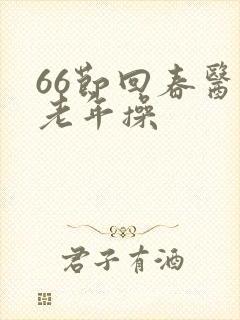 66節回春醫
老年操
君子有酒